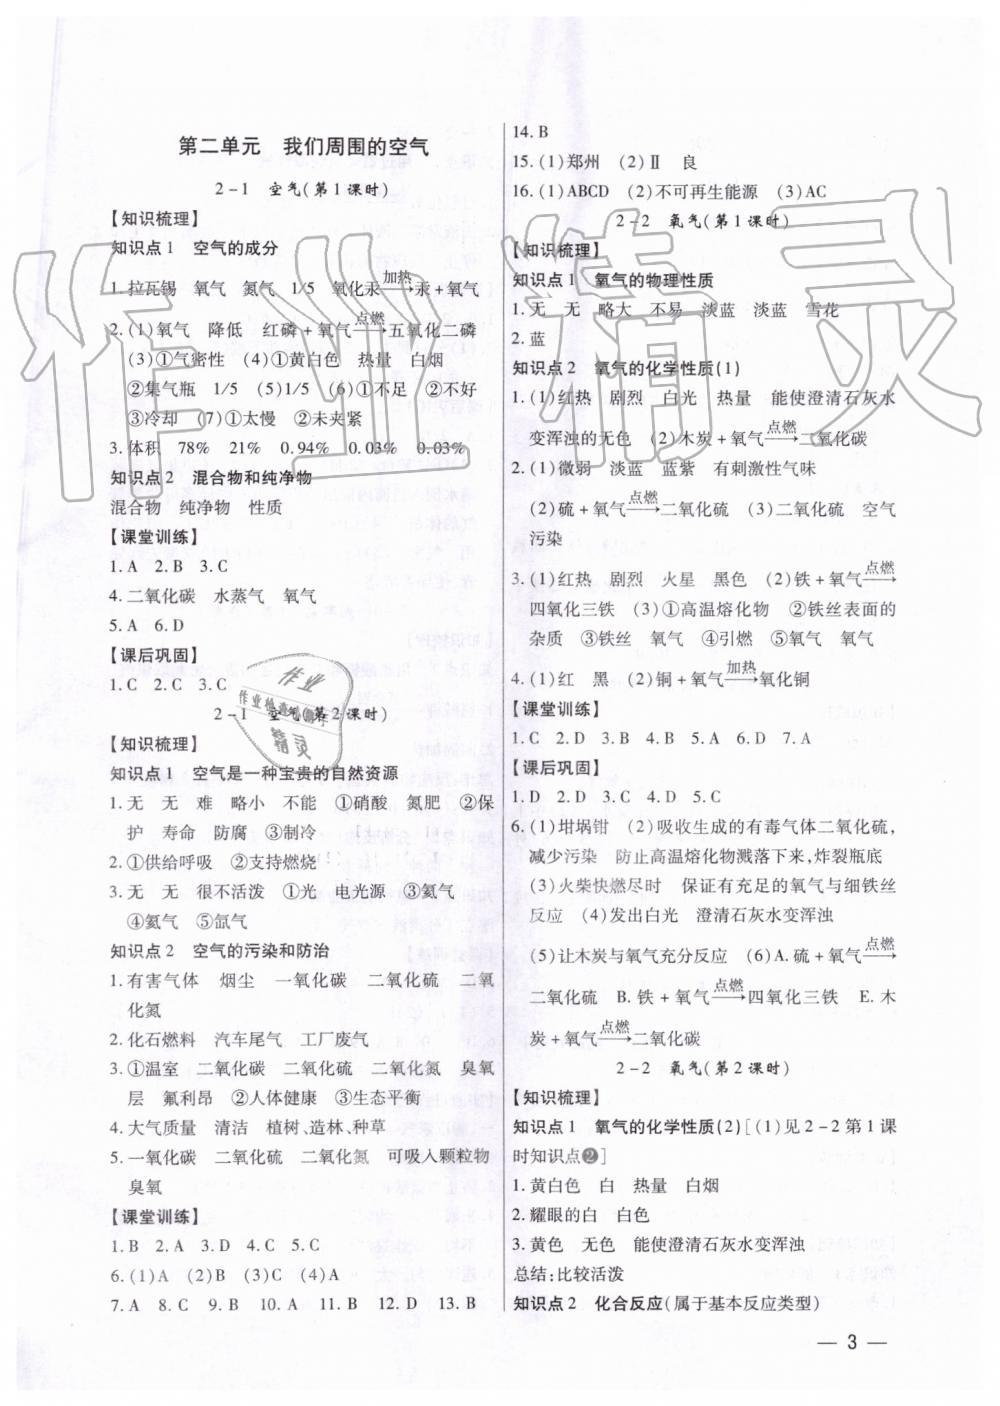 第二单元　我们周围的空气
2-1　空气(第1课时)
【知识梳理】
知识点1　空气的成分
1. 拉瓦锡　氧气　氮气　1/5　氧化汞 加热→ 汞+氧气
2. (1)氧气　降低　红磷+氧气 点燃→ 五氧化二磷
(3)①气密性　(4)①黄白色　热量　白烟
②集气瓶　1/5　(5)1/5　(6)①不足　②不好
③冷却　(7)①太慢　②未夹紧
3. 体积　78%　21%　0.94%　0.03%　0.03%
知识点2　混合物和纯净物
混合物　纯净物　性质
【课堂训练】
1. A　2. B　3. C
4. 二氧化碳　水蒸气　氧气
5. A　6. D
【课后巩固】
1. C　2. C　3. C
2-1　空气(第2课时)
【知识梳理】
知识点1　空气是一种宝贵的自然资源
1. 无　无　难　略小　不能　①硝酸　氮肥　②保
护　寿命　防腐　③制冷
2. ①供给呼吸　②支持燃烧
3. 无　无　很不活泼　①光　电光源　③氦气
④氦气　⑤氙气
知识点2　空气的污染和防治
1. 有害气体　烟尘　一氧化碳　二氧化硫　二氧
化氮
2. 化石燃料　汽车尾气　工厂废气
3. ①温室　二氧化碳　二氧化硫　二氧化氮　臭氧
层　氟利昂　②人体健康　③生态平衡
4. 大气质量　清洁　植树、造林、种草
5. 一氧化碳　二氧化硫　二氧化氮　可吸入颗粒物
臭氧
【课堂训练】
1. B　2. A　3. D　4. C　5. C
6. (1)A　(2)B　(3)C　(4)A
7. A　8. C　9. B　10. A　11. B　12. D　13. B
14. B
15. (1)郑州　(2)Ⅱ　良
16. (1)ABCD　(2)不可再生能源　(3)AC
2-2　氧气(第1课时)
【知识梳理】
知识点1　氧气的物理性质
1. 无　无　略大　不易　淡蓝　淡蓝　雪花
2. 蓝
知识点2　氧气的化学性质(1)
1. (1)红热　剧烈　白光　热量　能使澄清石灰水
变浑浊的无色　(2)木炭+氧气 点燃→ 二氧化碳
2. (1)微弱　淡蓝　蓝紫　有刺激性气味
(2)硫+氧气 点燃→ 二氧化硫　(3)二氧化硫　空气
污染
3. (1)红热　剧烈　火星　黑色　(2)铁+氧气 点燃→
四氧化三铁　(3)①高温熔化物　②铁丝表面的
杂质　③铁丝　氧气　④引燃　⑤氧气　氧气
4. (1)红　黑　(2)铜+氧气 加热→ 氧化铜
【课堂训练】
1. C　2. D　3. B　4. B　5. A　6. D　7. A
【课后巩固】
1. D　2. D　3. C　4. D　5. C
6. (1)坩埚钳　(2)吸收生成的有毒气体二氧化硫,
减少污染　防止高温熔化物溅落下来,炸裂瓶底
(3)火柴快燃尽时　保证有充足的氧气与细铁丝
反应　(4)发出白光　澄清石灰水变浑浊
(5)让木炭与氧气充分反应　(6)A. 硫+氧气 点燃→
二氧化硫　B. 铁+氧气 点燃→ 四氧化三铁　E. 木
炭+氧气 点燃→ 二氧化碳
2-2　氧气(第2课时)
【知识梳理】
知识点1　氧气的化学性质(2)[(1)见2-2第1课
时知识点❷]
1. 黄白色　白　热量　白烟
2. 耀眼的白　白色
3. 黄色　无色　能使澄清石灰水变浑浊
总结:比较活泼
知识点2　化合反应(属于基本反应类型)
— 3 —
作业精灵
作业
作业检查小助手
精灵